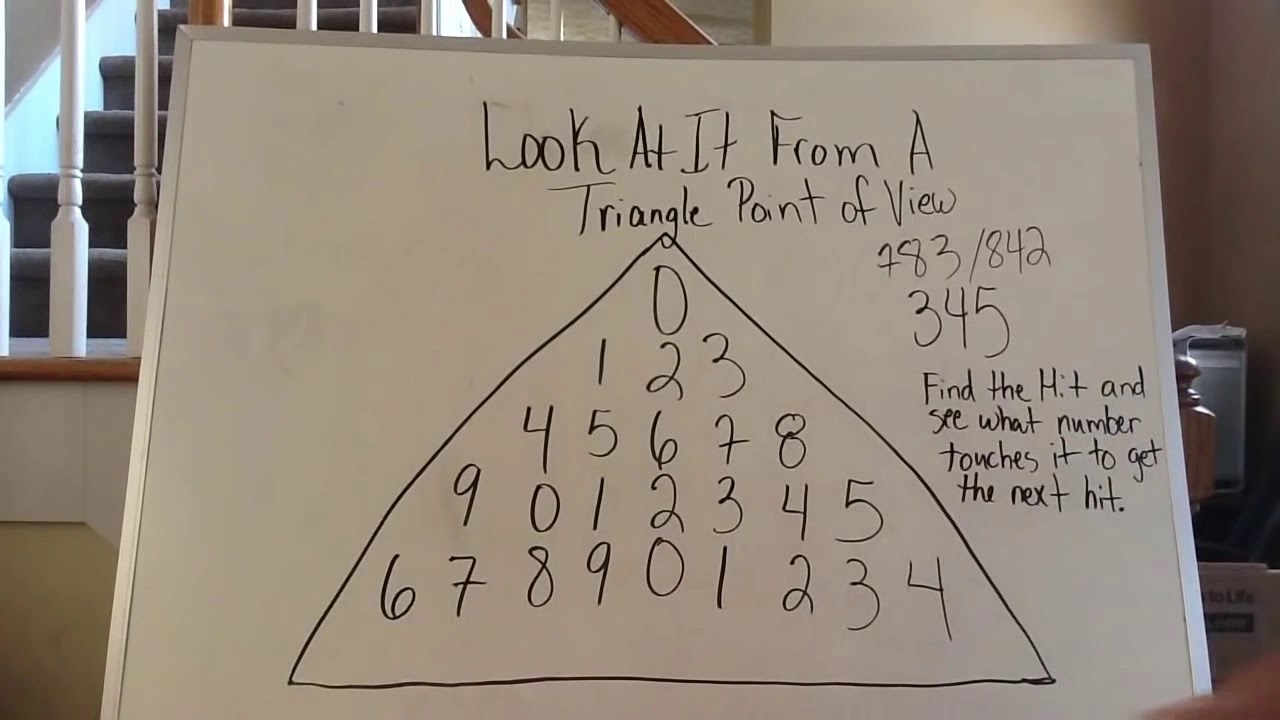 Look At It From A
Triangle Point of View
783/842
345
Find the Hit and
see what number
touches it to get
the next hit.
0
1 2 3
4 5 6 7 8
9 0 1 2 3 4 5
6 7 8 9 0 1 2 3 4
to Life